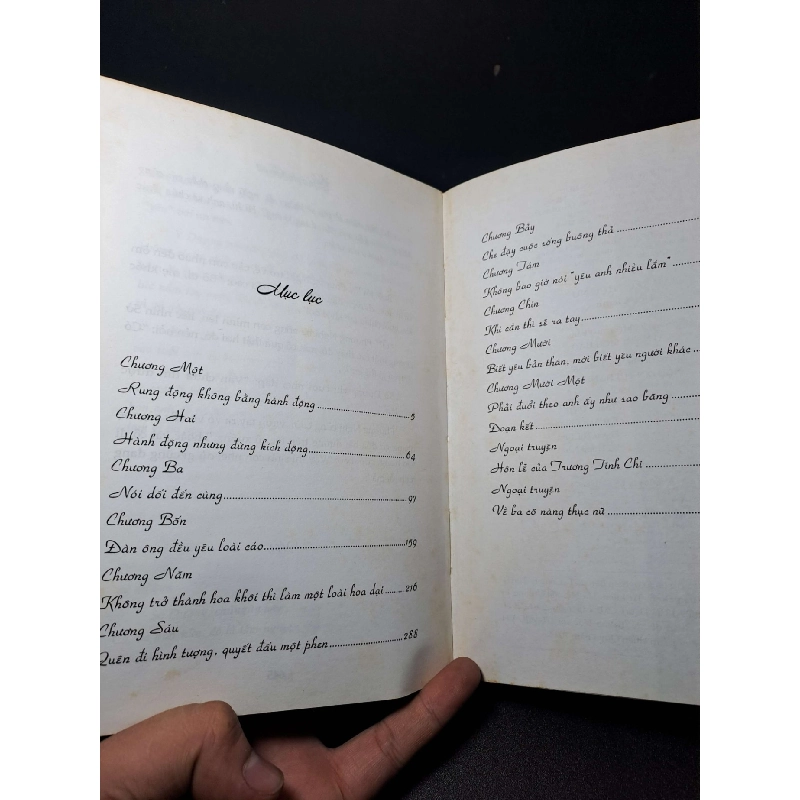 Mục lục
Chương Một
Rung động không bằng hành động....................5
Chương Hai
Hành động nhưng đừng kích động....................64
Chương Ba
Nói dối đến cùng....................97
Chương Bốn
Đàn ông đều yêu loài cáo....................159
Chương Năm
Không trở thành hoa khôi thì làm một loài hoa dại.......216
Chương Sáu
Quên đi hình tượng, quyết đấu một phen....................288
Chương Bảy
Che đậy cuộc sống buông thả....................
Chương Tám
Không bao giờ nói "yêu anh nhiều lắm"......
Chương Chín
Khi cần thì sẽ ra tay....................
Chương Mười
Biết yêu bản thân, mới biết yêu người khác...
Chương Mười Một
Phải đuổi theo anh ấy như rao băng..........
Đoạn kết....................
Ngoại truyện
Hôn lễ của Trương Tinh Chi..............
Ngoại truyện
Về ba cô nàng thục nữ....................